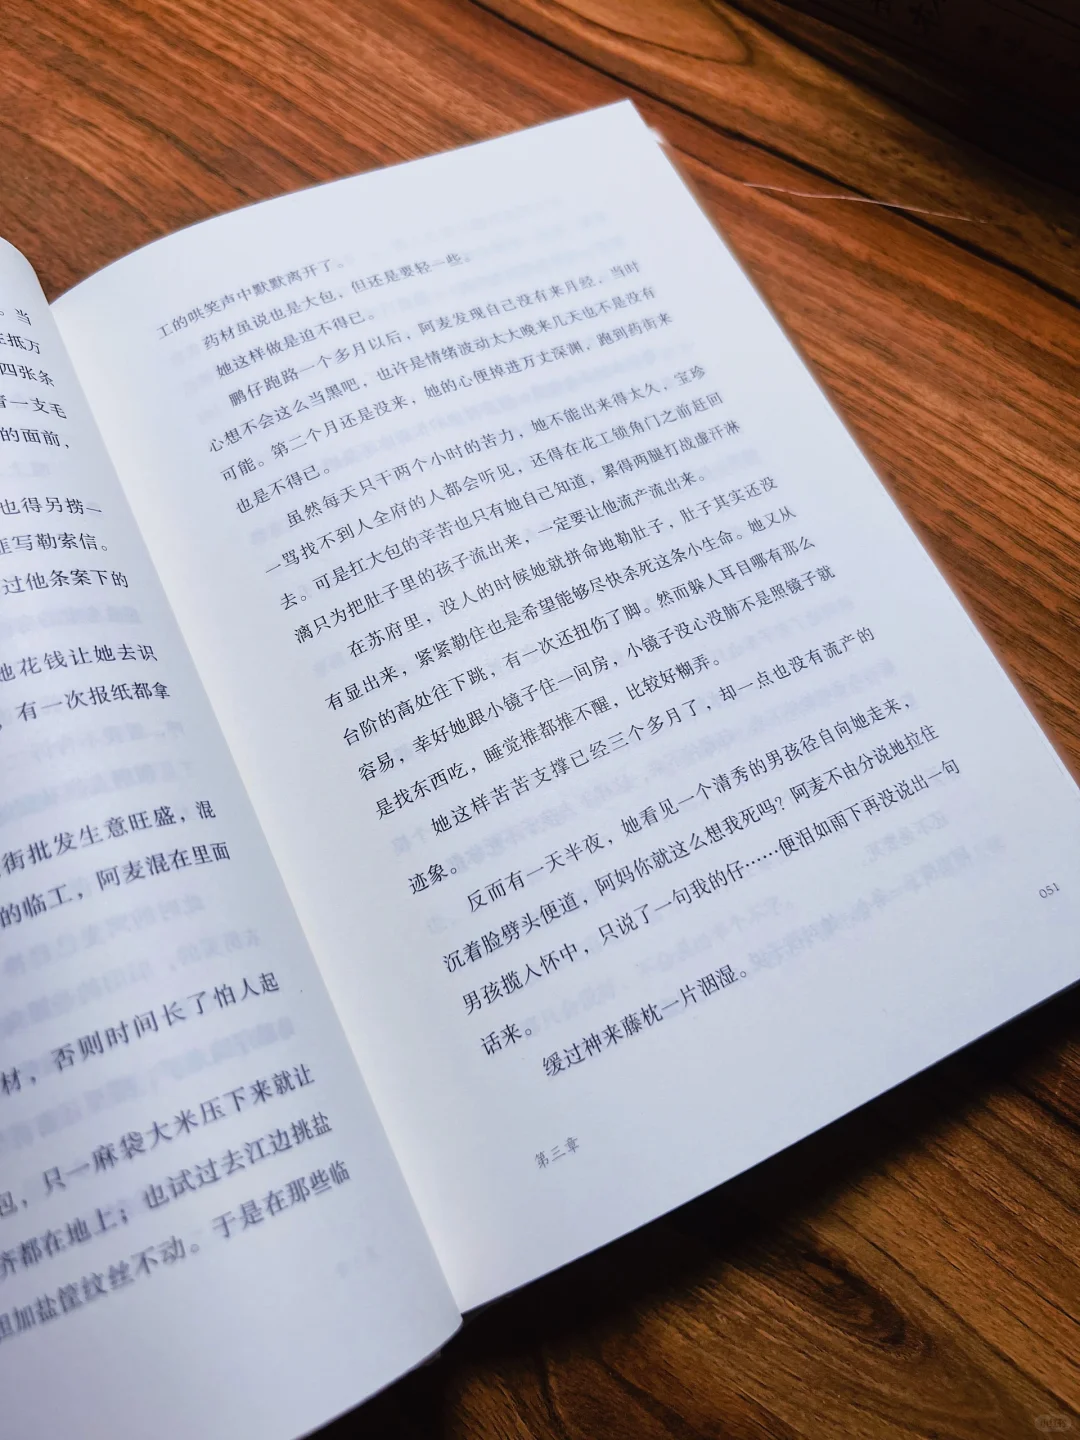 。当
抵万
四张条
一支毛
的面前，
也得另捞一
写勒索信。
过他条案下的
花钱让她去识
，有一次报纸都拿
街批发生意旺盛，混
的临工，阿麦混在里面
材，否则时间长了怕人起
包，只一麻袋大米压下来就让
齐都在地上；也试过去江边挑盐
担加盐筐纹丝不动。于是在那些临
工的哄笑声中默默离开了。
药材虽说也是大包，但还是要轻一些。
她这样做是迫不得已。
鹏仔跑路一个多月以后，阿麦发现自己没有来月经，当时
心想不会这么当黑吧，也许是情绪波动太大晚来几天也不是没有
可能。第二个月还是没来，她的心便掉进万丈深渊，跑到药街来
也是不得已。
虽然每天只干两个小时的苦力，她不能出来得太久，宝珍
一骂找不到人全府的人都会听见，还得在花工锁角门之前赶回
去。可是扛大包的辛苦也只有她自己知道，累得两腿打战虚汗淋
漓只为把肚子里的孩子流出来，一定要让他流产流出来。
在苏府里，没人的时候她就拼命地勒肚子，肚子其实还没
有显出来，紧紧勒住也是希望能够尽快杀死这条小生命。她又从
台阶的高处往下跳，有一次还扭伤了脚。然而躲人耳目哪有那么
容易，幸好她跟小镜子住一间房，小镜子没心没肺不是照镜子就
是找东西吃，睡觉推都推不醒，比较好糊弄。
她这样苦苦支撑已经三个多月了，却一点也没有流产的
迹象。
反而有一天半夜，她看见一个清秀的男孩径自向她走来，
沉着脸劈头便道，阿妈你就这么想我死吗？阿麦不由分说地拉住
男孩揽入怀中，只说了一句我的仔……便泪如雨下再没说出一句
话来。
缓过神来藤枕一片洇湿。
第三章
051